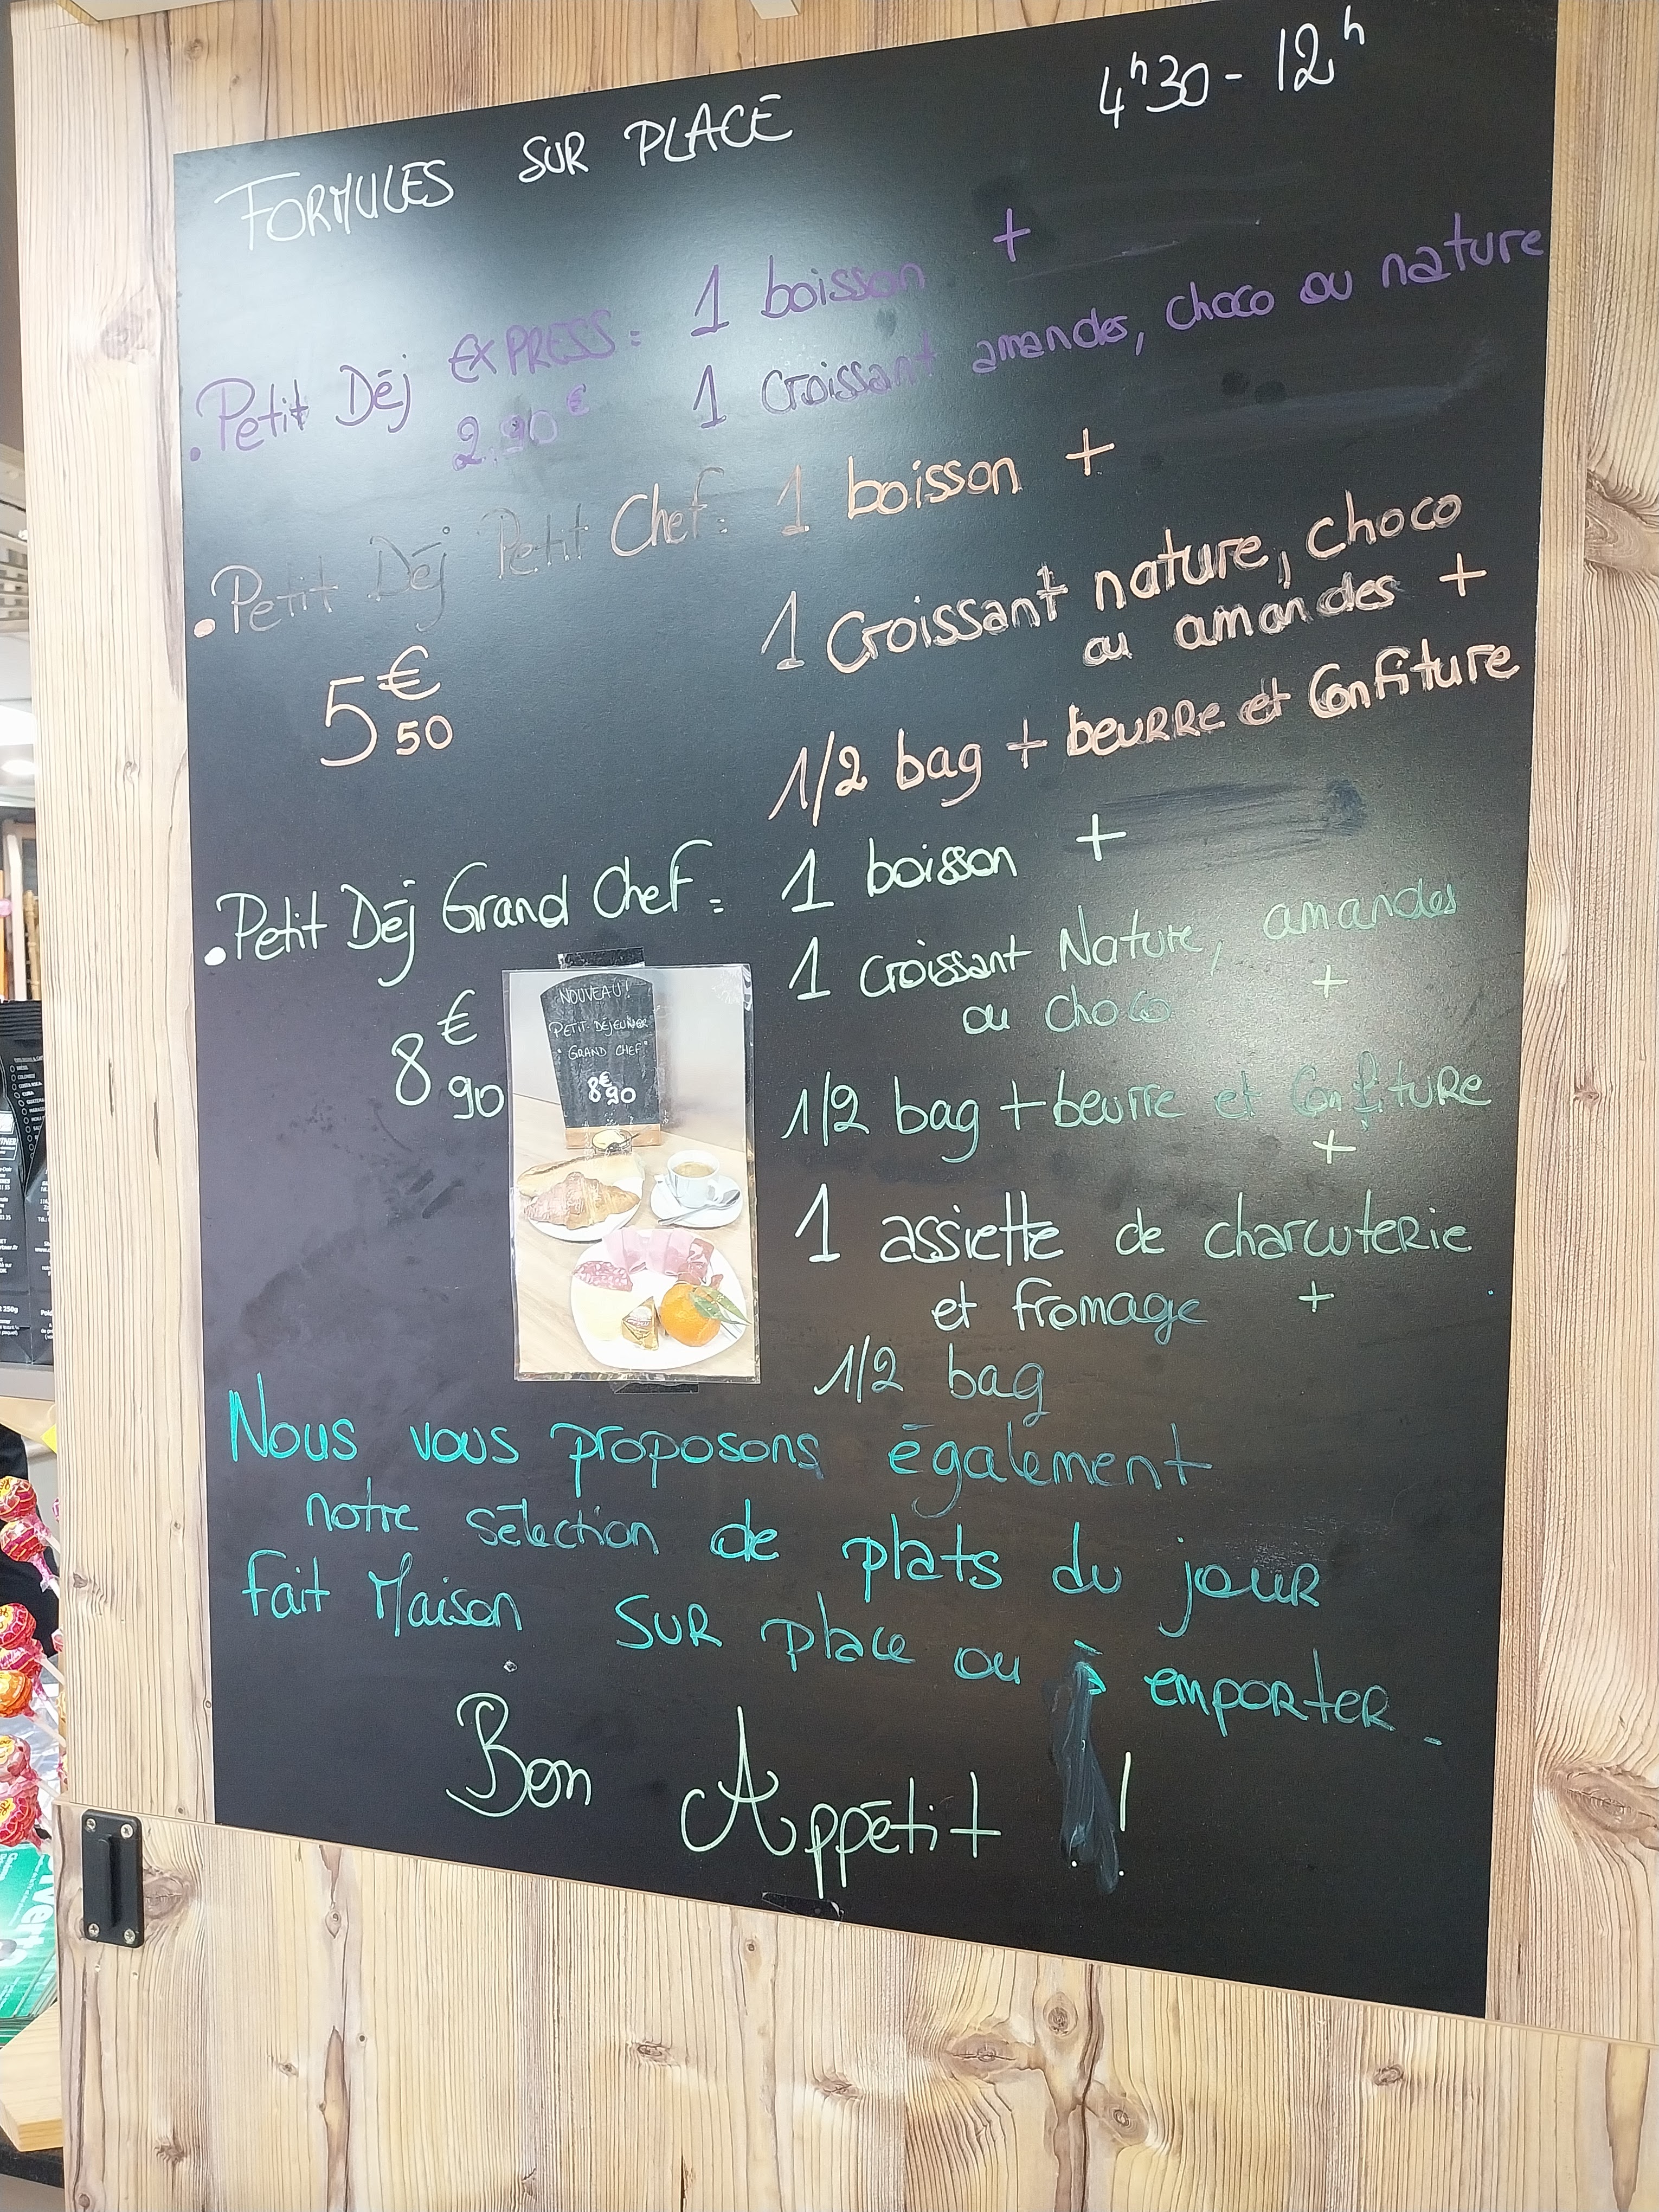 FORMULES SUR PLACE 4h30 - 12h
• Petit Déj EXPRESS : 1 boisson +
2.90€ 1 Croissant amandes, choco ou nature
• Petit Déj Petit Chef : 1 boisson +
1 Croissant nature, choco
ou amandes +
5€50
1/2 bag + beurre et Confiture
• Petit Déj Grand Chef : 1 boisson +
1 Croissant Nature, amandes
ou choco +
8€90
1/2 bag + beurre et Confiture
+
1 assiette de charcuterie
et fromage +
1/2 bag
NOUVEAU !
PETIT-DÉJEUNER
"GRAND CHEF"
8€90
Nous vous proposons également
notre sélection de plats du jour
Fait Maison sur place ou à emporter_
Bon Appétit !